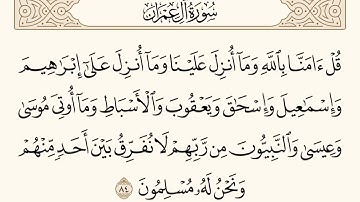 سُورَةُ آلِ عِمْرَان
قُلْ ءَامَنَّا بِٱللَّهِ وَمَآ أُنزِلَ عَلَيْنَا وَمَآ أُنزِلَ عَلَىٰٓ إِبْرَٰهِيمَ
وَإِسْمَٰعِيلَ وَإِسْحَٰقَ وَيَعْقُوبَ وَٱلْأَسْبَاطِ وَمَآ أُوتِىَ مُوسَىٰ
وَعِيسَىٰ وَٱلنَّبِيُّونَ مِن رَّبِّهِمْ لَا نُفَرِّقُ بَيْنَ أَحَدٍ مِّنْهُمْ
وَنَحْنُ لَهُۥ مُسْلِمُونَ ٨٤